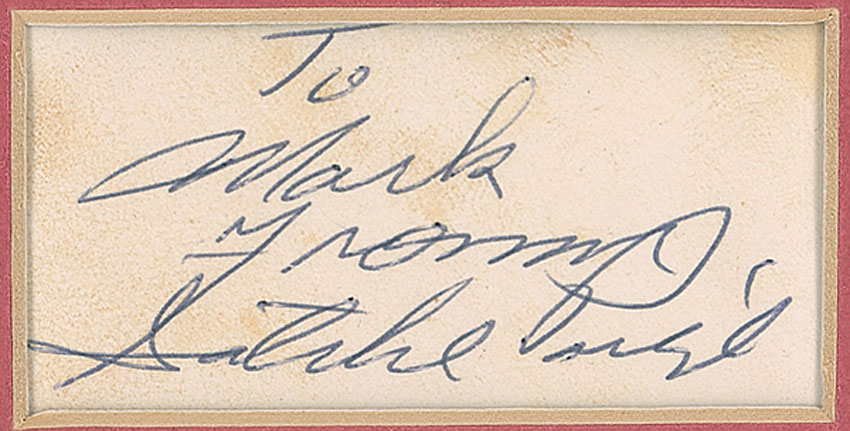 To
Mark
From
Satchel Paige